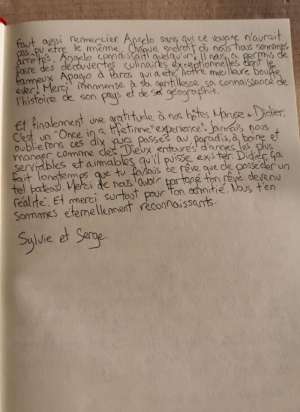 Faut aussi remercier Angelo sans qui ce voyage n'aurait
pas pu être le même. Chaque endroit où nous nous sommes
arrêtés, Angelo connaissait quelqu'un! Il nous a permis de
faire des découvertes culinaires exceptionnelles dont le
fameux Apagio à Paros qui a été notre meilleure bouffe
ever! Merci immense à ta gentillesse, sa connaissance de
l'histoire de son pays et de sa géographie.
Et finalement une gratitude à nos hôtes Maryse et Didier.
C'est un "Once in a lifetime" experience". Jamais nous
oublierons ces dix jours passés au paradis, à boire et
manger comme des Dieux entourés d'anges les plus
serviables et aimables qu'il puisse exister. Didier, ça
fait longtemps que tu faisais le rêve que de posséder un
tel bateau. Merci de nous avoir partagé ton rêve devenu
réalité. Et merci surtout pour ton amitié. Nous t'en
sommes éternellement reconnaissants.
Sylvie et Serge